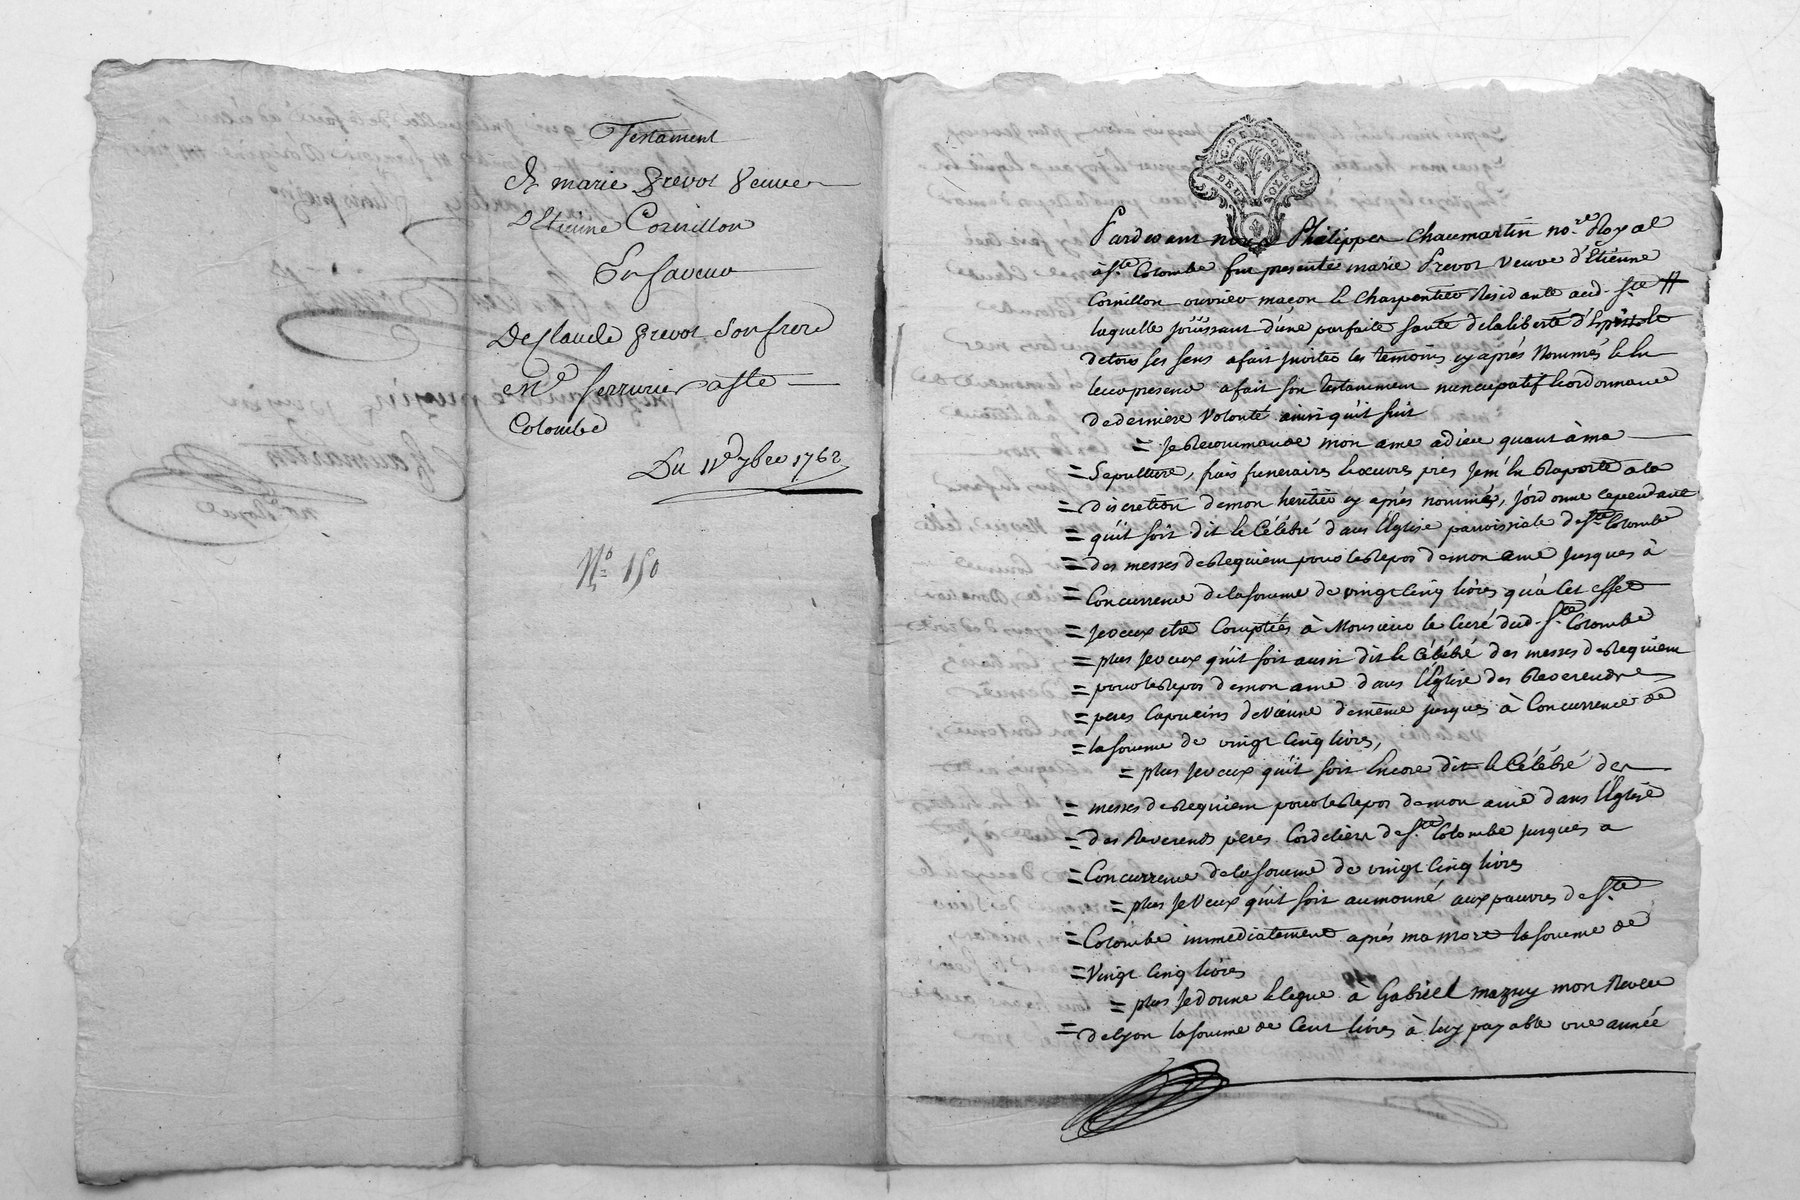 Testament
De marie prevot veuve
d'Etienne Cornillon
En faveur
De Claude prevot son frere
me serrurier a Ste
Colombe
Du 11e 7bre 1762
No 150
G. DE LION
DEUX SOLS
Pardevant nous Philippe Chaumartin nore Royal
à Ste Colombe fut presente marie Prevot veuve d'Etienne
Cornillon ouvrier maçon & charpentier Residante aud. Ste
laquelle jouissant d'une parfaite santé de la liberté d'Esprit &
de tous ses sens a fait inviter les temoins cy aprés Nommés & en
leur presence a fait son testament nuncupatif & ordonnance
de derniere Volonté ainsi qu'il suit
= Je Recommande mon ame a dieu quant à ma
= Sepulture, frais funeraires & œuvres pies je m'en Raporte a la
= discretion de mon heritier cy aprés nommé, j'ordonne cependant
= qu'il soit dit & Célébré dans l'Eglise parroissiale de Ste Colombe
= des messes de Requiem pour le Repos de mon ame jusques à
= Concurrence de la somme de vingt cinq livres qu'a cet effet
= je veux etre Comptées à Monsieur le Curé dud. Ste Colombe
= plus je veux qu'il soit aussi dit & Célébré des messes de Requiem
= pour le Repos de mon ame dans l'Eglise des Reverends
= peres Capucins de Vienne de même jusques à Concurrence de
= la somme de vingt cinq livres,
= plus je veux qu'il soit Encore dit & Célébré des
= messes de Requiem pour le Repos de mon ame dans l'Eglise
= des Reverends peres Cordeliers de Ste Colombe jusques a
= Concurrence de la somme de vingt cinq livres
= plus je veux qu'il soit aumonné aux pauvres de Ste
= Colombe immediatement aprés ma mort la somme de
= Vingt cinq livres
= plus je donne & legue à Gabriel mazuy mon Neveu
= de lyon la somme de Cent livres à luy payable une année